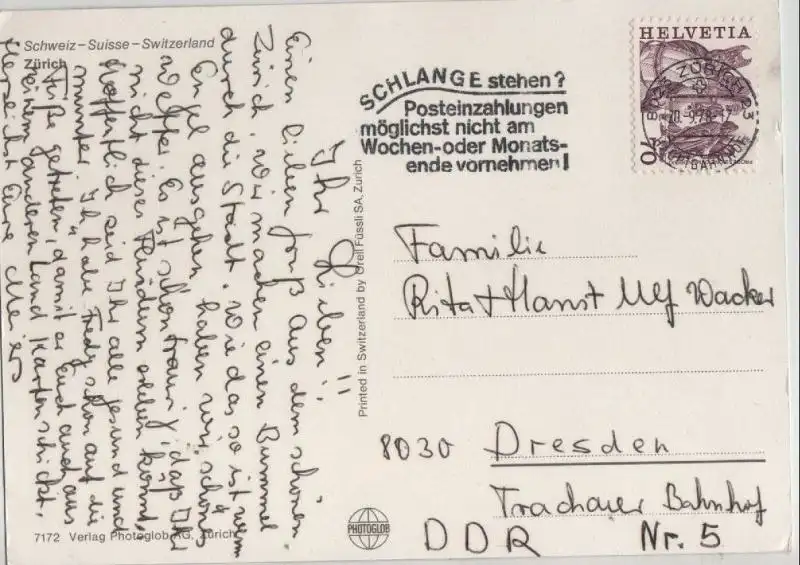 Schweiz – Suisse – Switzerland
Zürich
Ihr Lieben!!
Einen lieben Gruß aus dem schönen
Zürich. Wir machen einen Bummel
durch die Stadt. Wie das so ist wenn
Engel ausgehen, haben wir schönes
Wetter. Es ist schon traurig, daß Ihr
nicht dieses Fluidum erleben könnt.
Hoffentlich seid Ihr alle gesund und
munter. Ich habe Fredy schon auf die
Füße getreten, damit er Euch auch aus
einem anderen Land Karten schickt.
Herzlichst Eure
7172 Verlag Photoglob AG, Zürich
Printed in Switzerland by Orell Füssli SA, Zurich
PHOTOGLOB
SCHLANGE stehen?
Posteinzahlungen
möglichst nicht am
Wochen- oder Monats-
ende vornehmen!
HELVETIA
70
8023 ZÜRICH 23
HAUPTBAHNHOF
Familie
Rita + Ulf Wacker
8030 Dresden
Trachauer Bahnhof
DDR Nr. 5